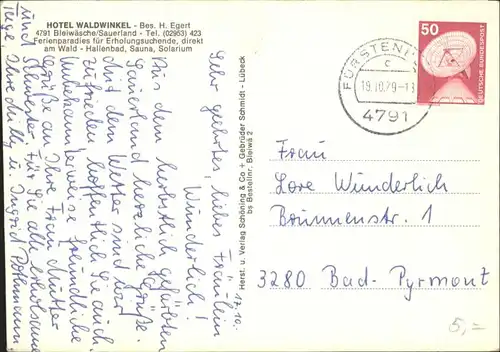 HOTEL WALDWINKEL - Bes. H. Egert
4791 Bleiwäsche/Sauerland - Tel. (02953) 423
Ferienparadies für Erholungsuchende, direkt
am Wald - Hallenbad, Sauna, Solarium
17.10.
Sehr geehrtes, liebes Fräulein
Wunderlich!
Aus dem herbstlich gefärbten
Sauerland herzliche Grüße.
Mit dem Wetter sind wir
zufrieden, hoffentlich Sie auch.
Unbekannterweise freundliche
Grüße an Ihre Frau Mutter
und Schwester. Für Sie alle erholsame
Tage Ihre Milly u. Ingrid
Herst. u. Verlag Schöning & Co + Gebrüder Schmidt - Lübeck
bs Bestellnr. Bleiwä 2
FÜRSTEN
c
19.10.79-13
4791
50
DEUTSCHE BUNDESPOST
Frau
Lore Wunderlich
Brunnenstr. 1
3280 Bad-Pyrmont
5,-